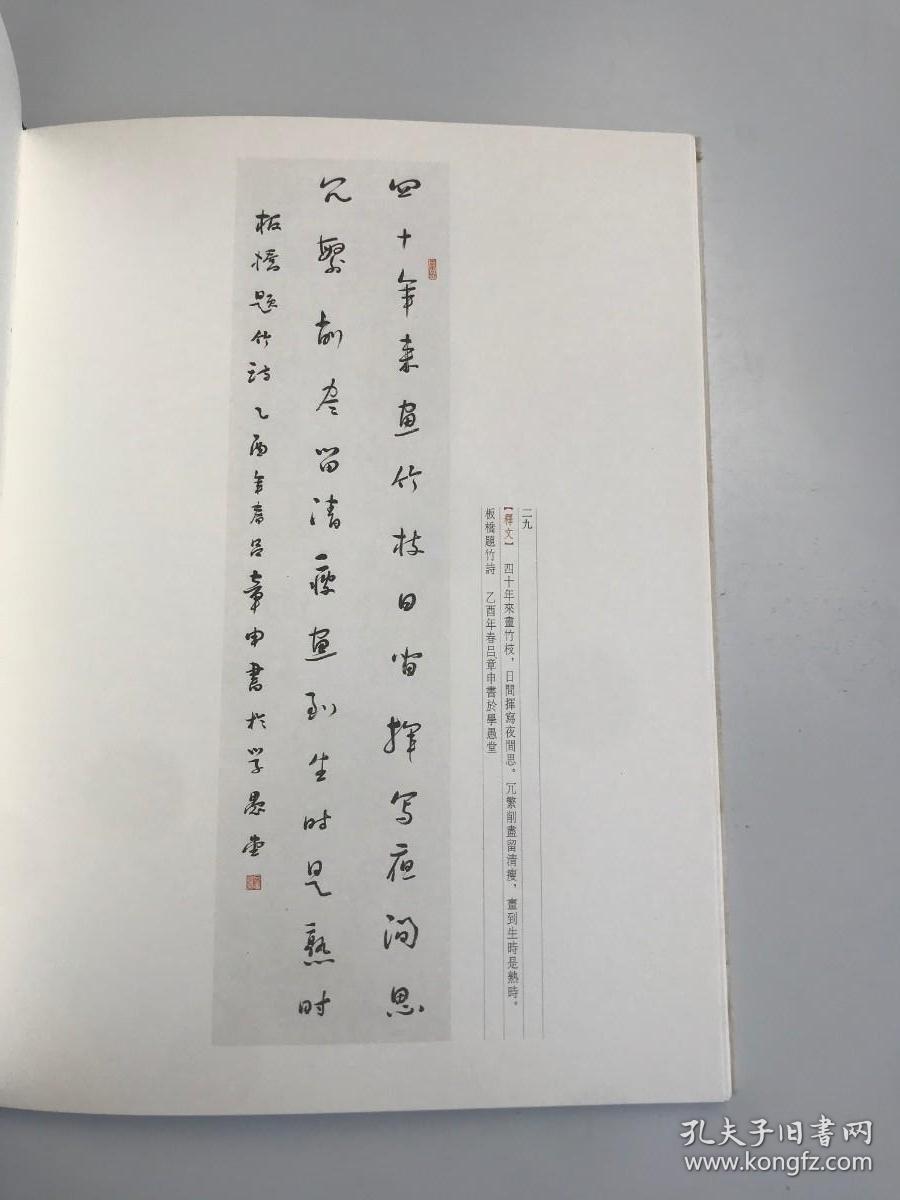 二九
【釋文】 四十年來畫竹枝，日間揮寫夜間思。冗繁削盡留清瘦，畫到生時是熟時。
板橋題竹詩 乙酉年春吕章申書於學愚堂
四十年来画竹枝日间挥写夜间思
冗繁削尽留清瘦画到生时是熟时
板橋題竹詩乙酉年春吕章申書於学愚堂
孔夫子旧书网
www.kongfz.com